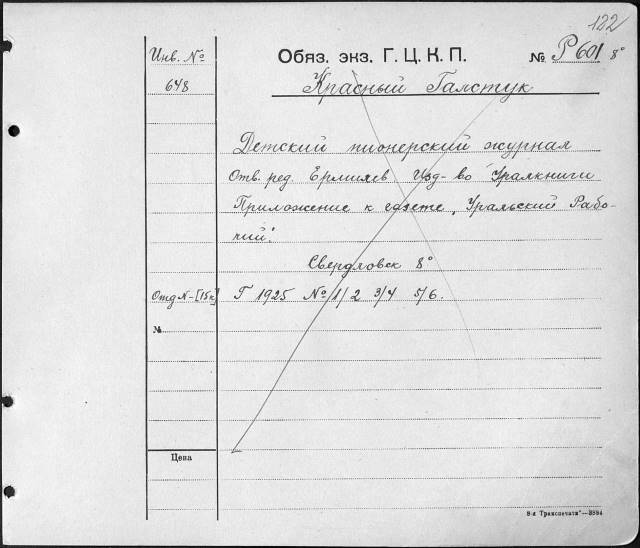 122
Инв. №
Обяз. экз. Г. Ц. К. П.
№ Р 601 8°
648
Красный Галстук
Детский пионерский журнал
Отв. ред. Ермияев. Изд-во "Уралкниги
Приложение к газете "Уральский Рабо-
чий".
Свердловск 8°
Отд № - [15к]
Г 1925 № 1/2 3/4 5/6.
№
Цена
8-я Транспечати"—3884